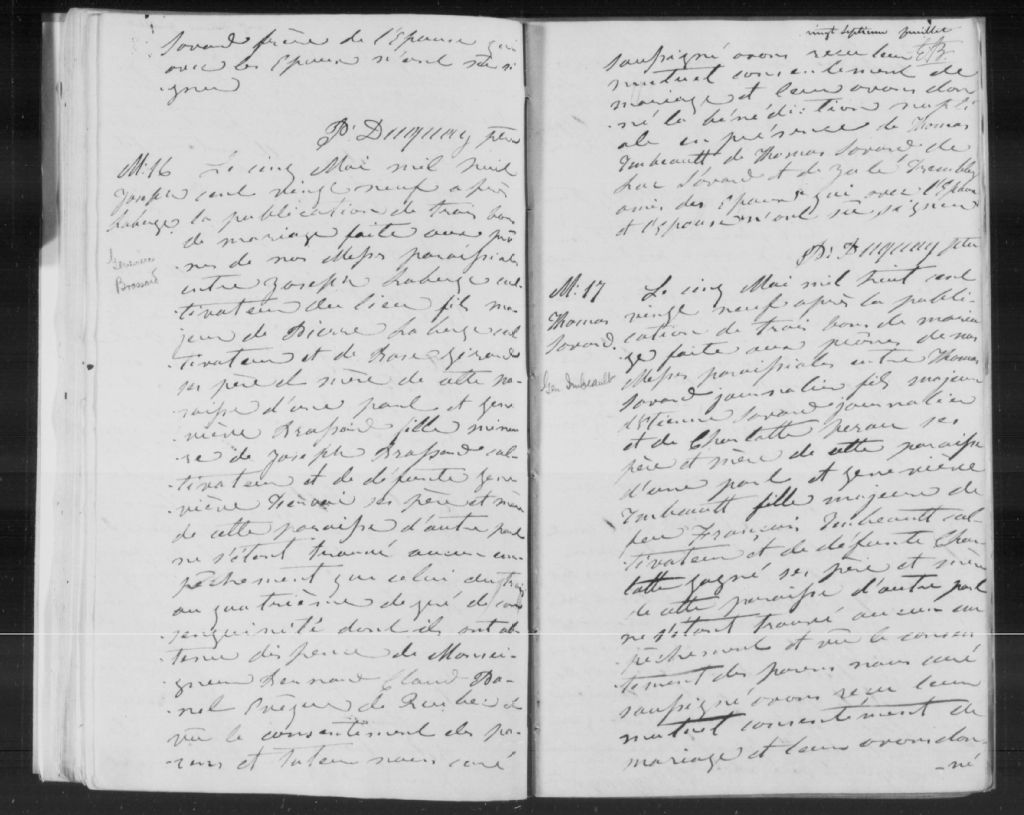 Savard frère de l'Epouse qui
avec les Epoux n'ont su si
gner
Pr Duguay ptre
M: 16
Joseph
Laberge
Genevieve
Brassard
Le cinq Mai mil huit
cent vingt neuf après
la publication de trois bans
de mariage faite aux prô
nes de nos Messes paroissiales
entre Joseph Laberge cul-
tivateur du lieu fils ma-
jeur de Pierre Laberge cul
tivateur et de Rose Girard
ses père et mère de cette pa-
roisse d'une part et Gene
viève Brassard fille mineu
re de Joseph Brassard cul-
tivateur et de défunte Gene
viève ses père et mère
de cette paroisse d'autre part
ne s'étant trouvé aucun em
pêchement que celui du trois
au quatrième degré de con
senguinité dont ils ont ob
tenu dispense de Monsei-
gneur Bernard Claud Pa-
net Evêque de Quebec et
vu le consentement des pa-
rens et tuteur nous curé
vingt septieme feuillet
EB.
soussigné avons reçu leur
mutuel consentement de
mariage et leur avons don
né la bénédiction nupti
ale en présence de Thomas
Imbeault de Thomas Savard de
Luc Girard et de Tremblay
amis des Epoux qui avec l'Epoux
et l'Epouse n'ont su signer
Pr Duguay ptre
M: 17
Thomas
Savard.
Gen Imbeault
Le cinq Mai mil huit cent
vingt neuf après la publi-
cation de trois bans de maria
ge faite aux prônes de nos
Messes paroissiales entre Thomas
Savard journalier fils majeur
d'Etienne Savard journalier
et de Charlotte ses
père et mère de cette paroisse
d'une part et Genevieve
Imbeault fille majeure de
feu François Imbeault cul-
tivateur et de défunte Char
lotte Gagné ses père et mère
de cette paroisse d'autre part
ne s'étant trouvé aucun em
pêchement et vu le consen
tement des parens nous curé
soussigné avons reçu leur
mutuel consentement de
mariage et leur avons don-
-né